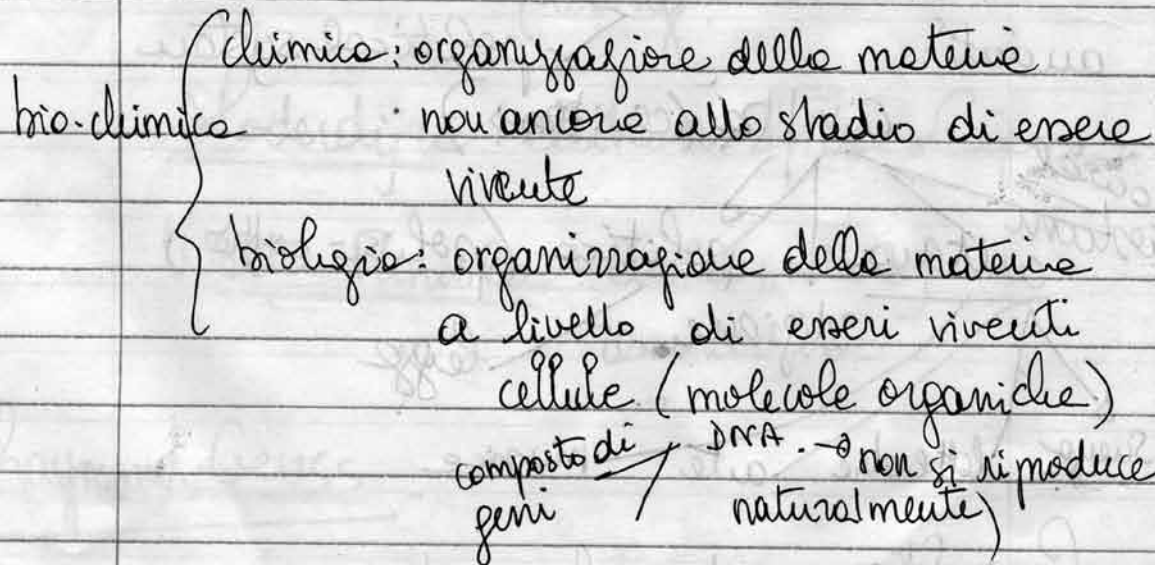 chimica: organizzazione della materia
bio-chimica : non ancora allo stadio di essere
vivente
biologia: organizzazione della materia
a livello di esseri viventi
cellule (molecole organiche)
composto di DNA. → non si riproduce
geni naturalmente)